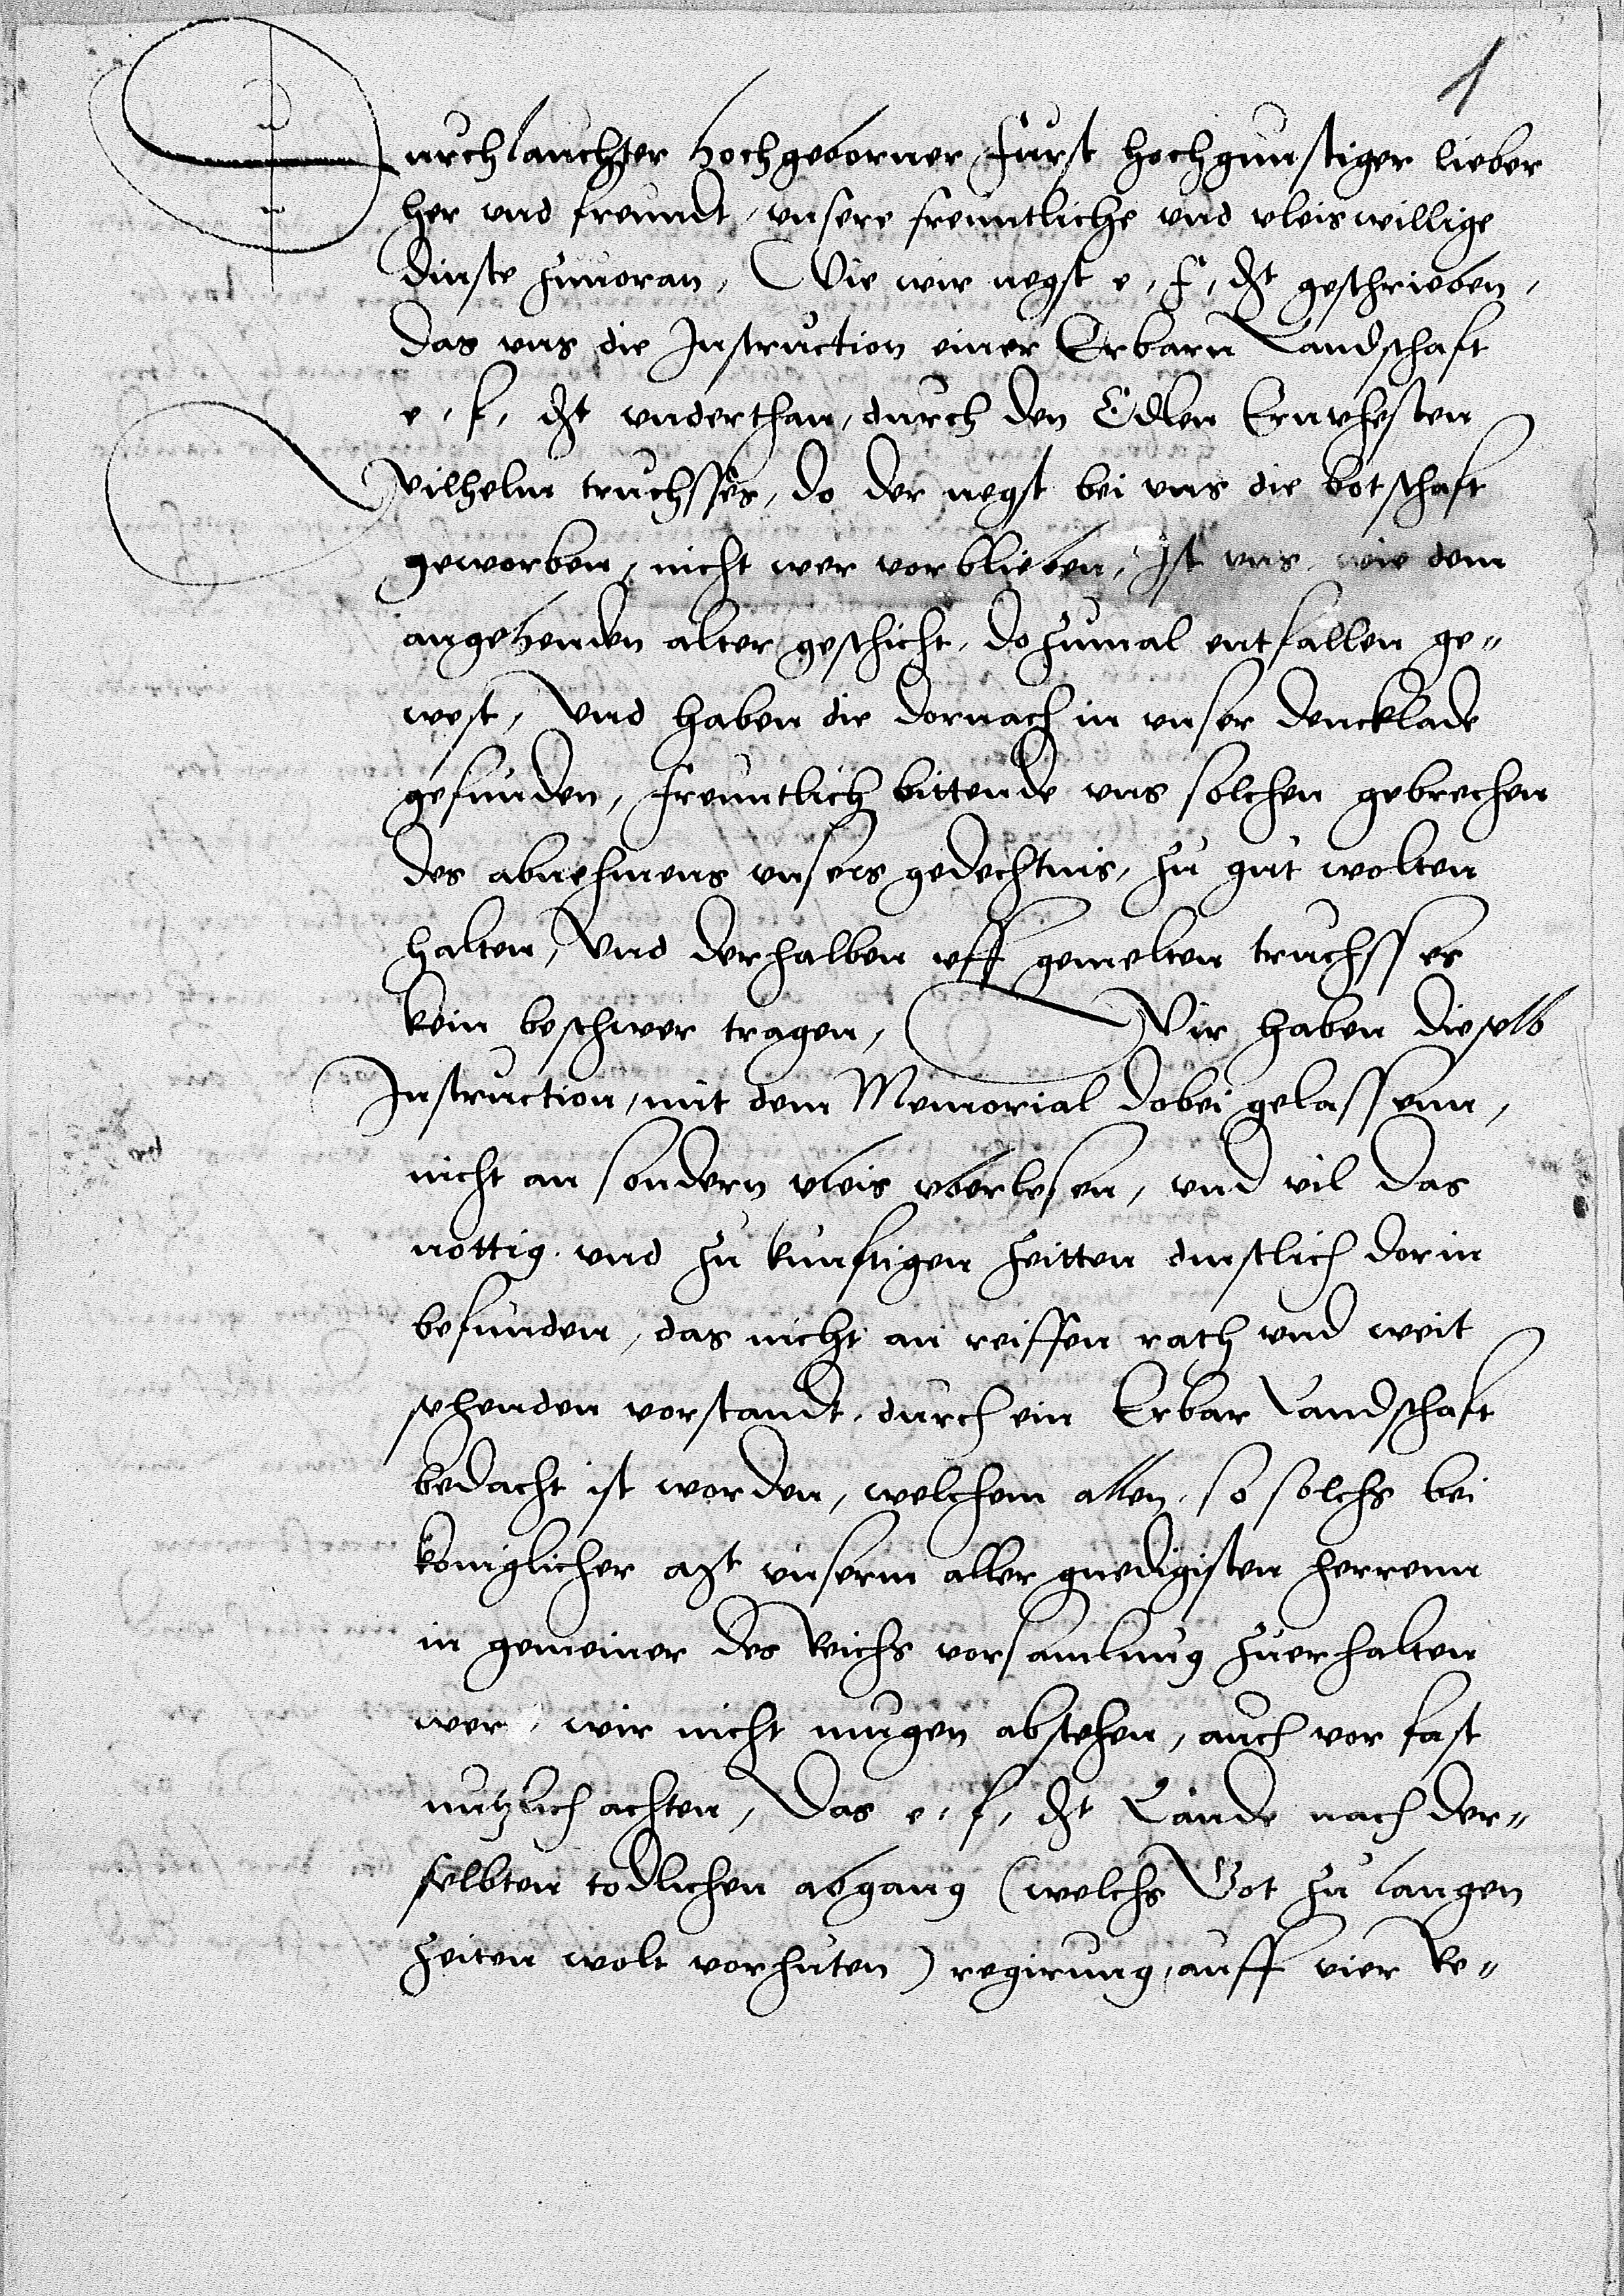 1
Durchlauchter hochgeborner Furst hochgunstiger lieber
her und freundt, unsere freuntliche und vleiswillige
dinste zuuoran, Wie wir negst e, f, dt geschrieben,
das uns die Instruction einer Erbarn Landschaft
e, f, dt underthan, durch den Edlen Ernvhesten
Wilhelm truchsses, do der negst bei uns die botschaft
geworben, nicht wer vorblieben, Ist uns, wie dem
angehenden alter geschicht, dozumal entfallen ge„
west, Und haben die dornach in unser dencklade
gefunden, freuntlich bittende uns solchen gebrechen
des abnehmens unsers gedechtnis, zu gut wolten
halten, Und derhalben uff gemelten truchsses
kein beschwer tragen, Wir haben dieselb
Instruction, mit dem Memorial dobei gelassenn,
nicht an sondern vleis uberlesen, und vil das
nottig und zu kunftigen zeitten dinstlich dorin
befunden, das nicht an reiffen rath und weit
sehenden vorstandt, durch ein Erbar Landschaft
bedacht ist worden, welchem allen, so solchs bei
koniglicher Mt unserm aller gnedigisten herrenn
in gemeiner des Reichs vorsamlung zuerhalten
wer, wir nicht mugen abstehen, auch vor fast
nutzlich achten, Das e, f, dt Lande nach der„
selbten todlichen abgang (welchs Got zu langen
zeiten wolt vorhuten) regirung, auff vier Re„